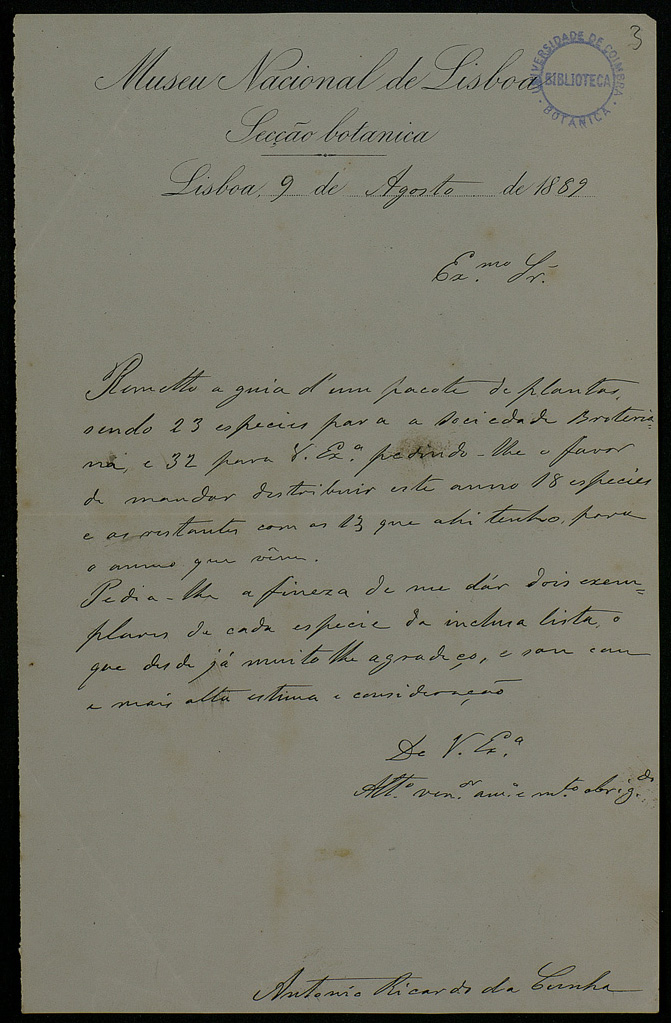 3
UNIVERSIDADE DE COIMBRA
BIBLIOTECA
BOTANICA
Museu Nacional de Lisboa
Secção botanica
Lisboa, 9 de Agosto de 1889
Ex.mo Sr.
Remetto a guia d'um pacote de plantas,
sendo 23 especies para a Sociedade Broteria=
na, e 32 para V. Ex.ª pedindo-lhe o favor
de mandar destribuir este anno 18 especies
e as restantes com as 13 que ahi tenho, para
o anno que vem.
Pedia-lhe a fineza de me dár dois exem=
plares de cada especie da inclusa lista, o
que desde já muito lhe agradeço, e sou com
a mais alta estima e consideração
De V. Ex.ª
Att.º ven.or am.º e m.to obrig.do
Antonio Ricardo da Cunha